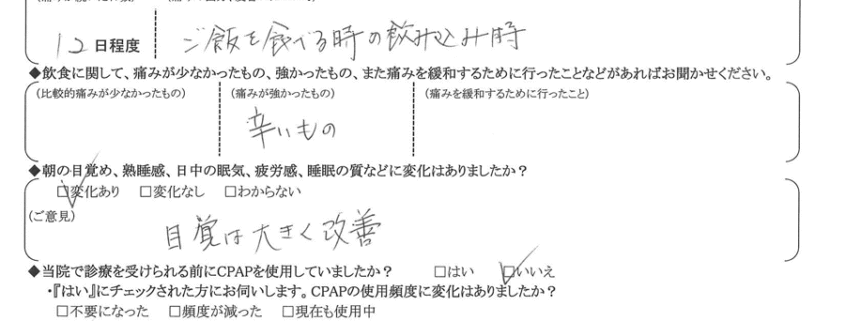 12日程度 ご飯を食べる時の飲み込み時
◆飲食に関して、痛みが少なかったもの、強かったもの、また痛みを緩和するために行ったことなどがあればお聞かせください。
(比較的痛みが少なかったもの) (痛みが強かったもの) (痛みを緩和するために行ったこと)
辛いもの
◆朝の目覚め、熟睡感、日中の眠気、疲労感、睡眠の質などに変化はありましたか？
☑変化あり □変化なし □わからない
(ご意見)
目覚は大きく改善
◆当院で診療を受けられる前にCPAPを使用していましたか？ □はい ☑いいえ
・『はい』にチェックされた方にお伺いします。CPAPの使用頻度に変化はありましたか？
□不要になった □頻度が減った □現在も使用中